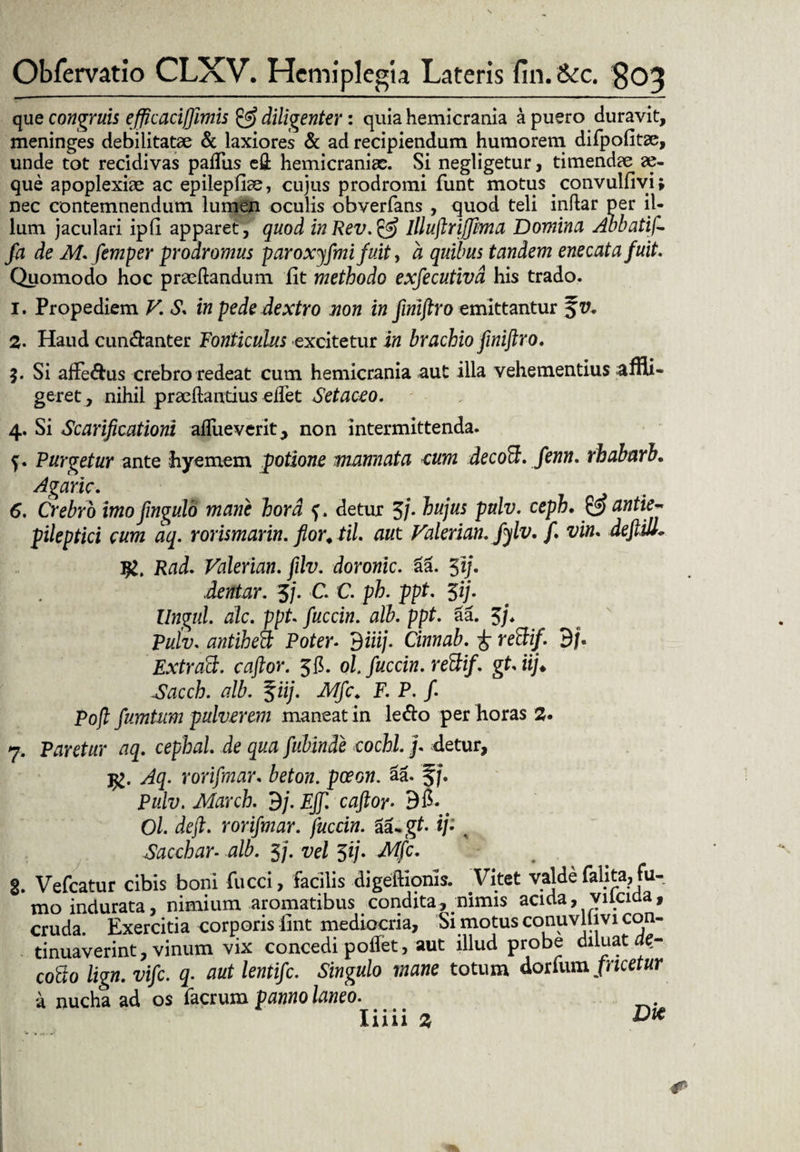 Obſervatio CLXV. Hemiplegia Lateris ſin. &c. 803
que congruis efficaciſſimis & diligenter: quia hemicrania à puero duravit,
meninges debilitatæ & laxiores & ad recipiendum humorem diſpoſitæ,
unde tot recidivas paſſus eſt hemicraniæ. Si negligetur, timendæ æ-
què apoplexiæ ac epilepſiæ, cujus prodromi ſunt motus convulſivi;
nec contemnendum lumen oculis obverſans, quod teli inſtar per il-
lum jaculari ipſi apparet, quod in Rev. & Illuſtriſſima Domina Abbatiſ-
ſa de M. ſemper prodromus paroxyſmi fuit, à quibus tandem enecata fuit.
Quomodo hoc præſtandum ſit methodo exſecutivâ his trado.
1. Propediem V. S. in pede dextro non in ſiniſtro emittantur ℥v.
2. Haud cunctanter Fonticulus excitetur in brachio ſiniſtro.
3. Si affectus crebro redeat cum hemicrania aut illa vehementius affli-
geret, nihil præſtantius eſſet Setaceo.
4. Si Scarificationi aſſueverit, non intermittenda.
5. Purgetur ante hyemem potione mannata cum decoct. ſenn. rhabarb.
Agaric.
6. Crebrò imo ſingulô manè horâ 5. detur ʒj. hujus pulv. ceph. & antie-
pileptici cum aq. rorismarin. flor. til. aut Valerian. ſylv. ſ. vin. deſtill.
℞. Rad. Valerian. ſilv. doronic. āā. ʒij.
dentar. ʒj. C. C. ph. ppt. ʒij.
Ungul. alc. ppt. ſuccin. alb. ppt. āā. ʒj.
Pulv. antihect Poter. ℈iiij. Cinnab. ♁ rectif. ℈j.
Extract. caſtor. ʒß. ol. ſuccin. rectif. gt. iij.
Sacch. alb. ℥iij. Mſc. F. P. ſ.
Poſt ſumtum pulverem maneat in lecto per horas 2.
7. Paretur aq. cephal. de qua ſubindè cochl. j. detur,
℞. Aq. roriſmar. beton. pœon. āā. ℥j.
Pulv. March. ℈j. Eſſ. caſtor. ℈ß.
Ol. deſt. roriſmar. ſuccin. āā. gt. ij.
Sacchar. alb. ʒj. vel ʒij. Mſc.
8. Veſcatur cibis boni ſucci, facilis digeſtionis. Vitet valdè ſalita, fu-
mo indurata, nimium aromatibus condita, nimis acida, viſcida,
cruda. Exercitia corporis ſint mediocria, Si motus conuvlſivi con-
tinuaverint, vinum vix concedi poſſet, aut illud probè diluat de-
cocto lign. viſc. q. aut lentiſc. Singulo mane totum dorſum fricetur
à nucha ad os ſacrum panno laneo.
Iiiii 2 Die